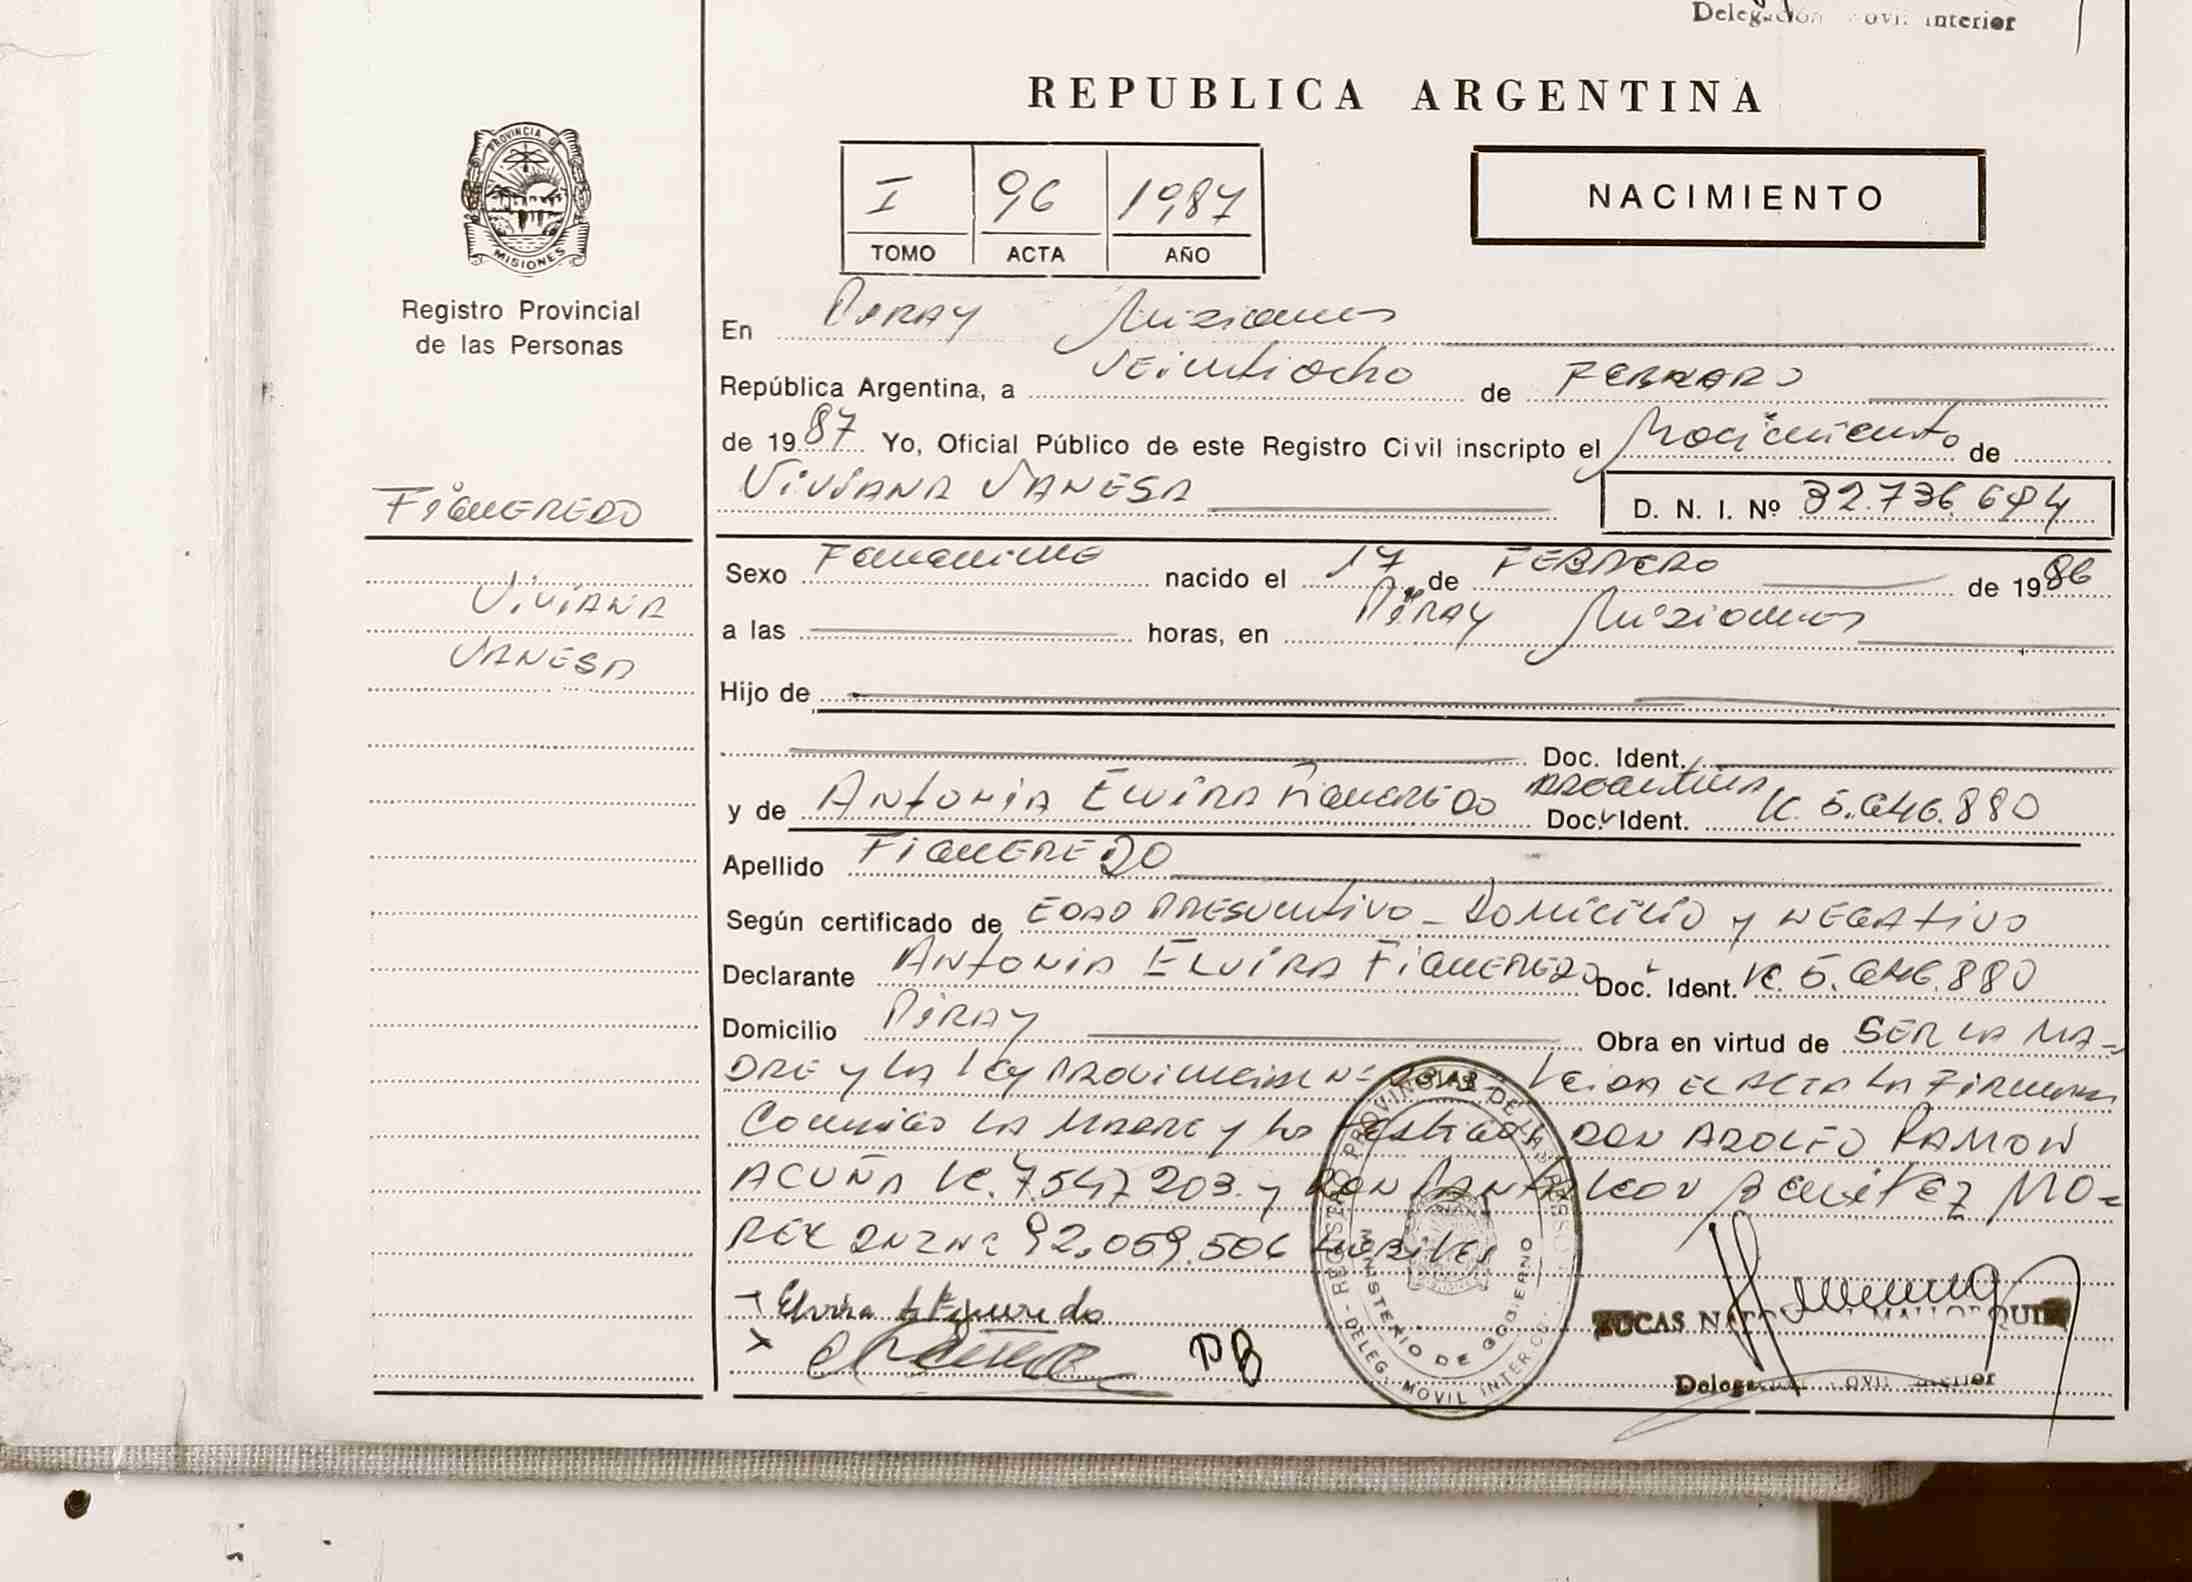 Delegación Movil Interior
REPUBLICA ARGENTINA
PROVINCIA DE
MISIONES
Registro Provincial
de las Personas
I 96 1987
TOMO ACTA AÑO
NACIMIENTO
En Piray Misiones
República Argentina, a Veintiocho de FEBRERO
de 1987 Yo, Oficial Público de este Registro Civil inscripto el Nacimiento de
VIVIANA VANESA
D. N. I. Nº 32.736.694
FIGUEREDO
VIVIANA
VANESA
Sexo Femenino nacido el 17 de FEBRERO de 1986
a las horas, en PIRAY Misiones
Hijo de
Doc. Ident.
y de ANTONIA ELVIRA FIGUEREDO ARGENTINA Doc. Ident. IC. 5.646.880
Apellido FIGUEREDO
Según certificado de EDAD PRESUNTIVO - DOMICILIO y NEGATIVO
Declarante ANTONIA ELVIRA FIGUEREDO Doc. Ident. IC. 5.646.880
Domicilio PIRAY Obra en virtud de SER LA MA-
DRE y LA LEY PROVINCIAL Nº LEIDA EL ACTA LA FIRMAN
Conmigo LA MADRE y los testigos DON ADOLFO RAMON
ACUÑA IC. 7.547.203. y DON PANTALEON BENITEZ MO-
REL DNI Nº 92.059.506 HABILES
Elvira A Figueredo
PB
REGISTRO PROVINCIAL DE LAS PERSONAS
MINISTERIO DE GOBIERNO
DELEG. MOVIL INTERIOR
LUCAS
Delegación Movil Interior